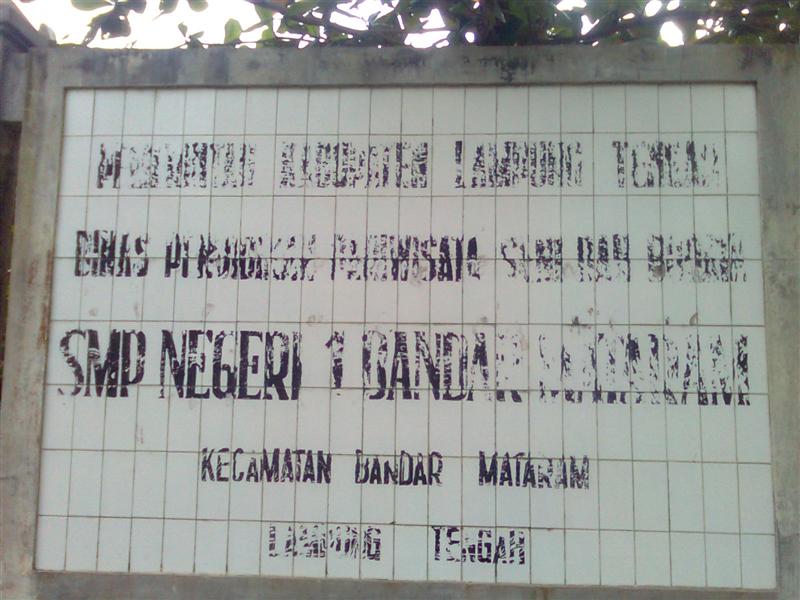 PEMERINTAH KABUPATEN LAMPUNG TENGAH
DINAS PENDIDIKAN PARIWISATA SENI DAN BUDAYA
SMP NEGERI 1 BANDAR MATARAM
KECAMATAN BANDAR MATARAM
LAMPUNG TENGAH